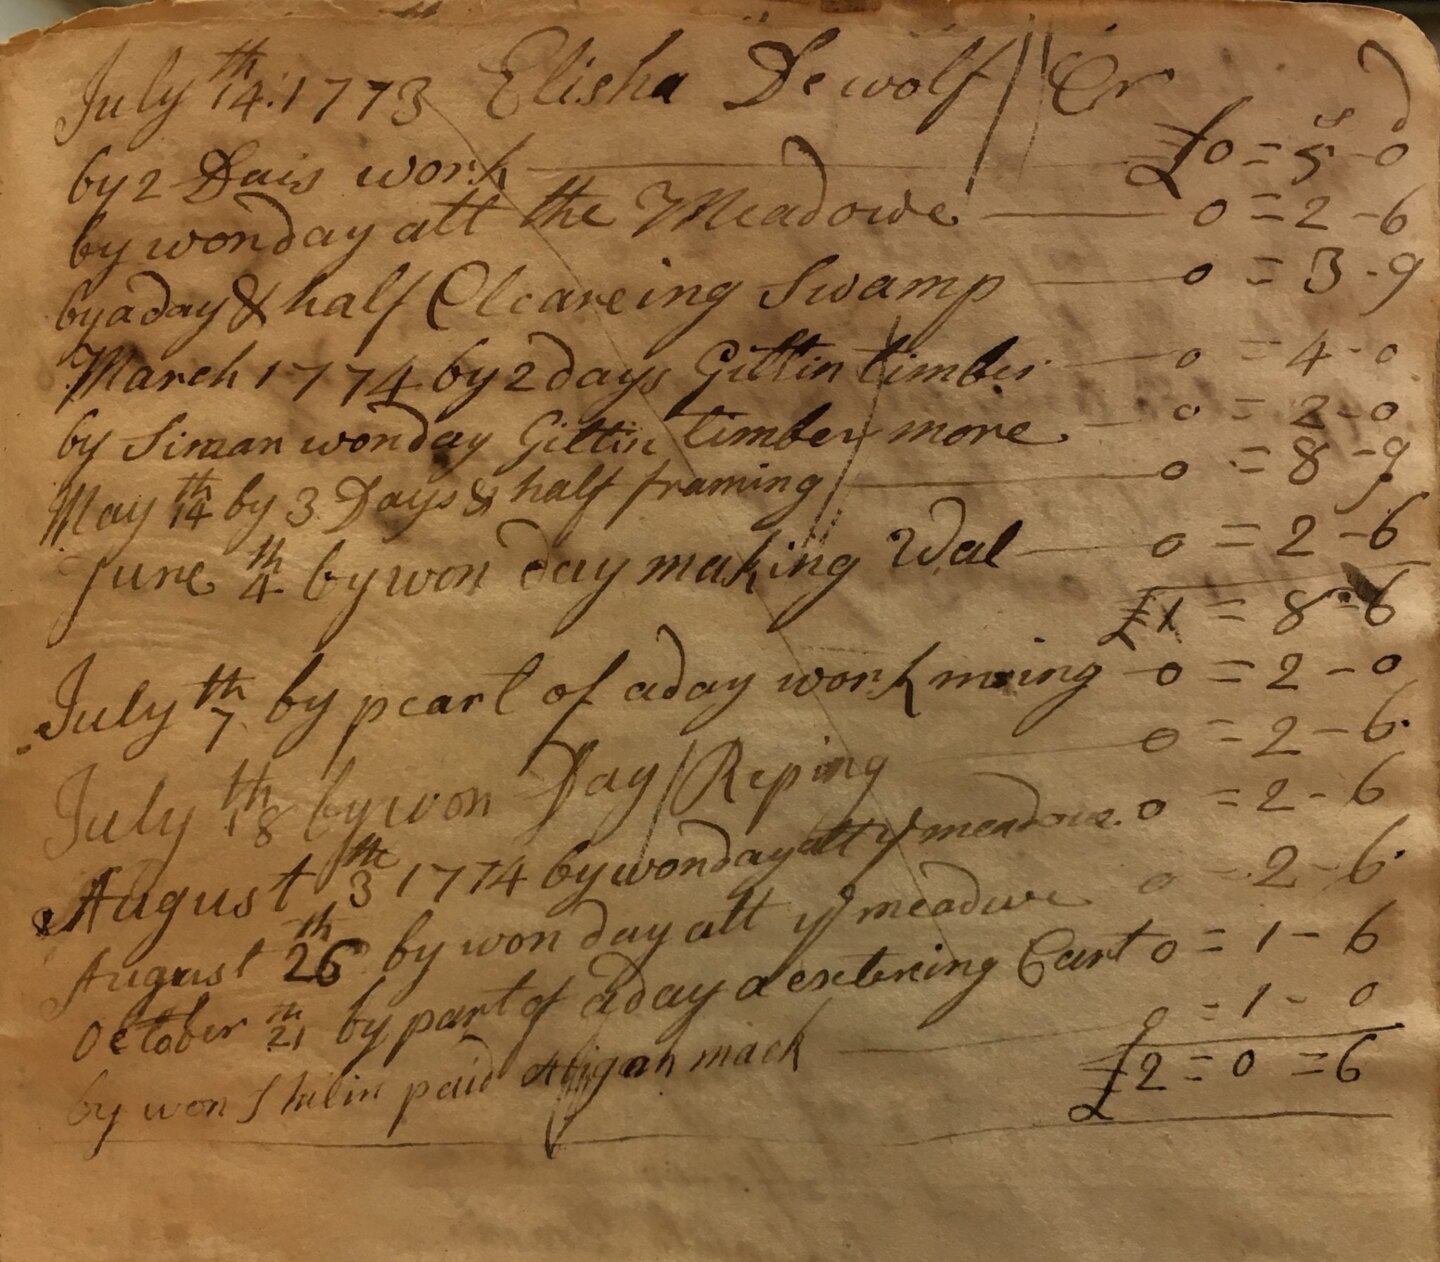 July 14th: 1773 Elisha Dewolf // Cr
s d
by 2 Dais work £0 = 5 - 0
by wonday att the Meadowe 0 = 2 - 6
by a day & half Cleareing Swamp 0 = 3 - 9
March 1774 by 2 days Gittin timber 0 = 4 - 0
by Siman wonday Gittin timber more 0 = 2 - 0
May 14th by 3 Days & half framing 0 = 8 - 9
June 4th by won day making Wal 0 = 2 - 6
£1 = 8 - 6
July 7th by peart of aday work moing 0 = 2 - 0
July 18th by won Day Reping 0 = 2 - 6
August 3th 1774 by wonday att ye meadowe 0 = 2 - 6
August 26th by won day att ye meadwe 0 - 2 - 6
October 21th by part of aday a extering Cart 0 = 1 - 6
by won Shilin paid mack 0 = 1 - 0
£2 = 0 = 6